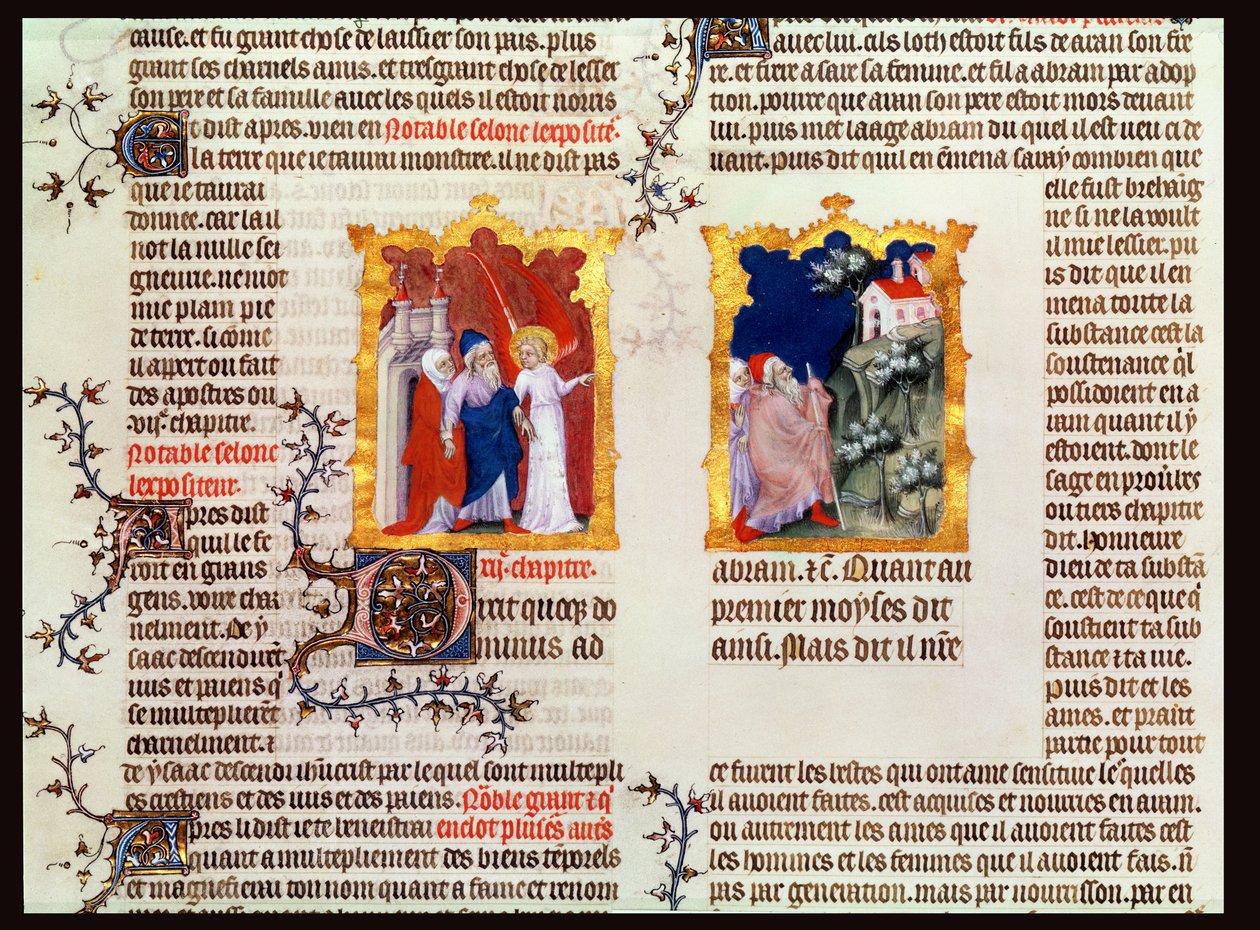 cause. et fu grant chose de laissier son pais. plus
grant ses charnels amis. et tresgrant chose de lesser
son pere et sa famille avec les quels il estoit norris
Et dist apres. vien en Notable selonc lexposité.
la terre que ie taurai monstree. il ne dist pas
que ie taurai
donnee. car la il
not la nulle sei
gneurie. ne niot
mie plain pie
de terre. si cōme
il apert ou fait
des apostres ou
.vije. chapitre.
Notable selonc
lexpositeur.
Apres dist
quil le fe
roit en grans
gens. voire char
nelment. De y
saac descendirēt
iuis et paiens q̄
se multeplierēt
charnelment. ⁊
de ysaac descendi ihūcrist par lequel sont multepli
es crestiens et des iuis et des paiens. Nōble grant ⁊ q̄
Apres li dist ie te beneistrai enclot plus̄es aut̄s
quant a multepliement des biens tēporels
et magnefierai ton nom quant a fame et renom
xije. chapitre.
Dixit quoqz do
minus ad
avec lui. cils loth estoit fils de aran son fre
re. et frere a sare sa femme. et fil a abram par adop
tion. pource que aran son pere estoit mors devant
lui. puis met laage abram du quel il est veu ci de
vant. puis dit quil en ēmena saray combien que
elle fust brehaig
ne si ne la voult
il mie lessier. pu
is dit que il en
mena toute la
substance cest la
soustenance q̄l
possidoient en a
ram quant il y
estoient. dont le
sage en prov̄bes
ou tiers chapitre
dit. honneure
dieu de ta substā
ce. cest de ce que q̄
soustient ta sub
stance ⁊ ta vie.
Puis dit et les
ames. et prāit
partie pour tout
abram. ⁊c̄. Quant au
premier moyses dit
ainsi. Mais dit il n̄re
ce furent les bestes qui ont ame sensitive lesquelles
il avoient faites. cest acquises et nourries en aram.
ou autrement les ames que il avoient faites cest
les hommes et les femmes que il avoient fais. n̄
pas par generation. mais par nourrisson. par en